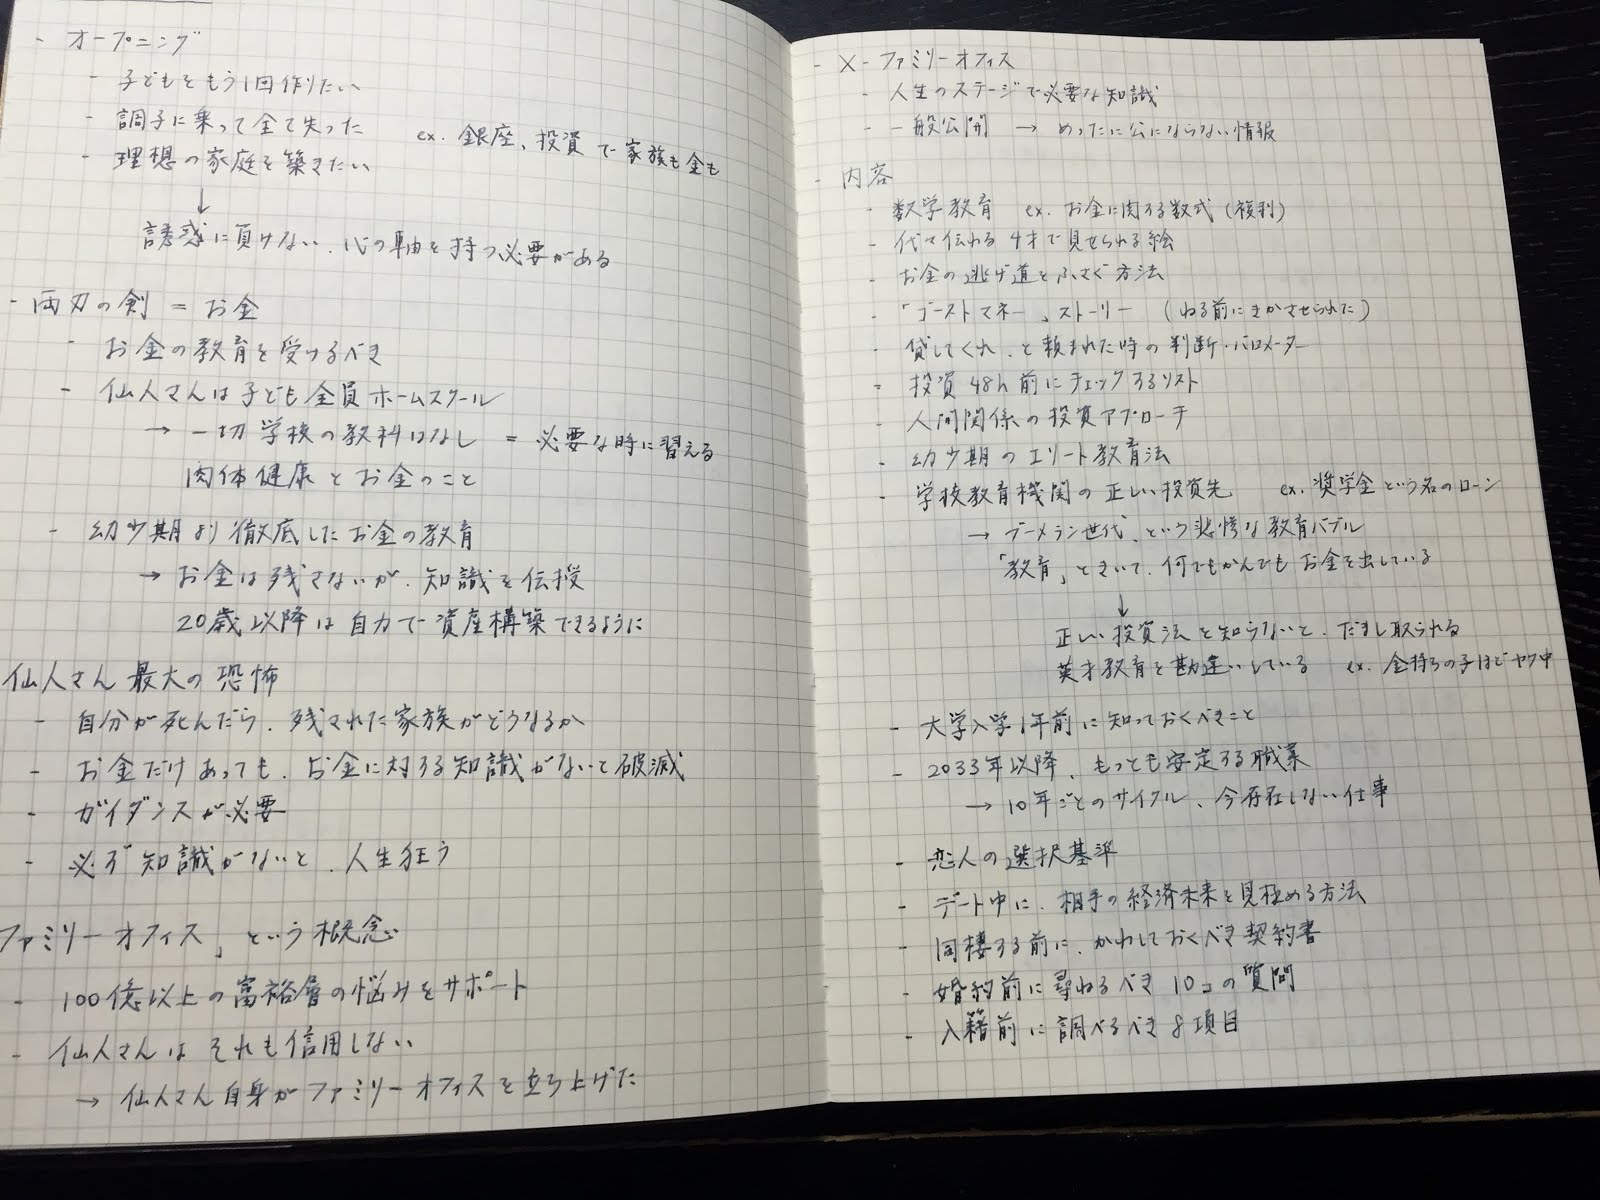 - オープニング
- 子どもをもう1回作りたい
- 調子に乗って全て失った ex. 銀座、投資で家族も金も
- 理想の家庭を築きたい
↓
誘惑に負けない、心の軸を持つ必要がある
- 両刃の剣 = お金
- お金の教育を受けるべき
- 仙人さんは子ども全員ホームスクール
→ 一切学校の教科はなし = 必要な時に習える
肉体健康とお金のこと
- 幼少期より徹底したお金の教育
→ お金は残さないが、知識を伝授
20歳以降は自力で資産構築できるように
仙人さん最大の恐怖
- 自分が死んだら、残された家族がどうなるか
- お金だけあっても、お金に対する知識がないと破滅
- ガイダンスが必要
- 必ず知識がないと、人生狂う
ファミリーオフィス」という概念
- 100億以上の富裕層の悩みをサポート
- 仙人さんはそれも信用しない
→ 仙人さん自身がファミリーオフィスを立ち上げた
- X-ファミリーオフィス
- 人生のステージで必要な知識
- 一般公開 → めったに公にならない情報
- 内容
- 数学教育 ex. お金に関する数式(複利)
- 代々伝わる4才で見せられる絵
- お金の逃げ道をふさぐ方法
- 「ゴーストマネー」ストーリー (ねる前にきかさせられた)
- 貸してくれ、と頼まれた時の判断・バロメーター
- 投資48h前にチェックするリスト
- 人間関係の投資アプローチ
- 幼少期のエリート教育法
- 学校教育機関の正しい投資先 ex. 奨学金という名のローン
→ ブーメラン世代、という悲惨な教育バブル
「教育」ときいて、何でもかんでもお金を出している
↓
正しい投資法を知らないと、だまし取られる
英才教育を勘違いしている ex. 金持ちの子ほどヤク中
- 大学入学1年前に知っておくべきこと
- 2033年以降、もっとも安定する職業
→ 10年ごとのサイクル、今存在しない仕事
- 恋人の選択基準
- デート中に、相手の経済未来を見極める方法
- 同棲する前に、かわしておくべき契約書
- 婚約前に尋ねるべき10コの質問
- 入籍前に調べるべき8項目